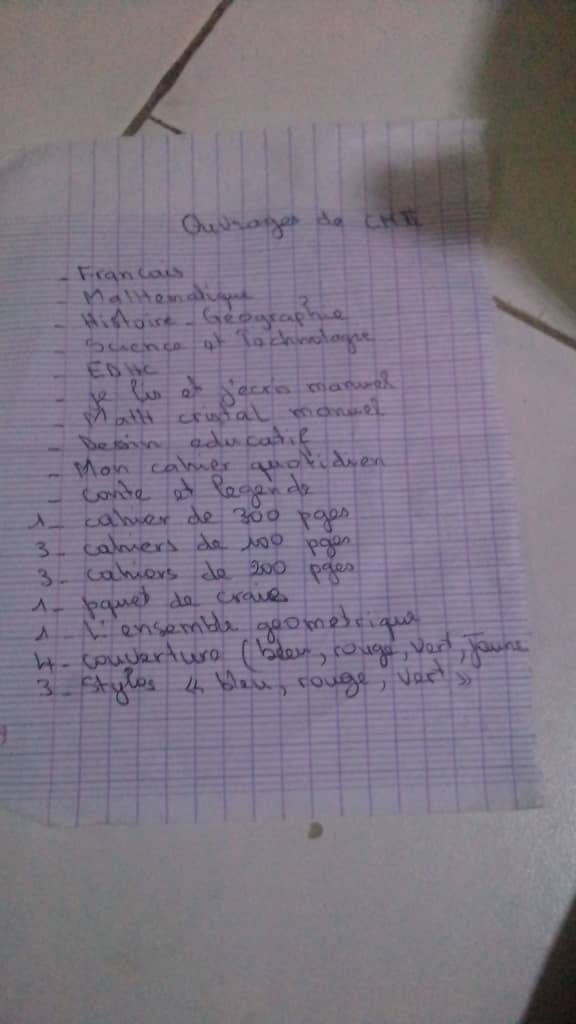 Ouvrages de CM II
- Francais
- Malthematique
- Histoire - Géographie
- Science et Technologie
- EDHC
- Je lis et j'ecris manuel
- Math cristal manuel
- Dessin educatif
- Mon cahier quotidien
- Conte et legende
1 - cahier de 300 pges
3 - cahiers de 100 pges
3 - cahiers de 200 pges
1 - pquet de craies
1 - L'ensemble geometrique
4 - couverture (bleu, rouge, vert, Jaune
3 - Styles « bleu, rouge, vert »